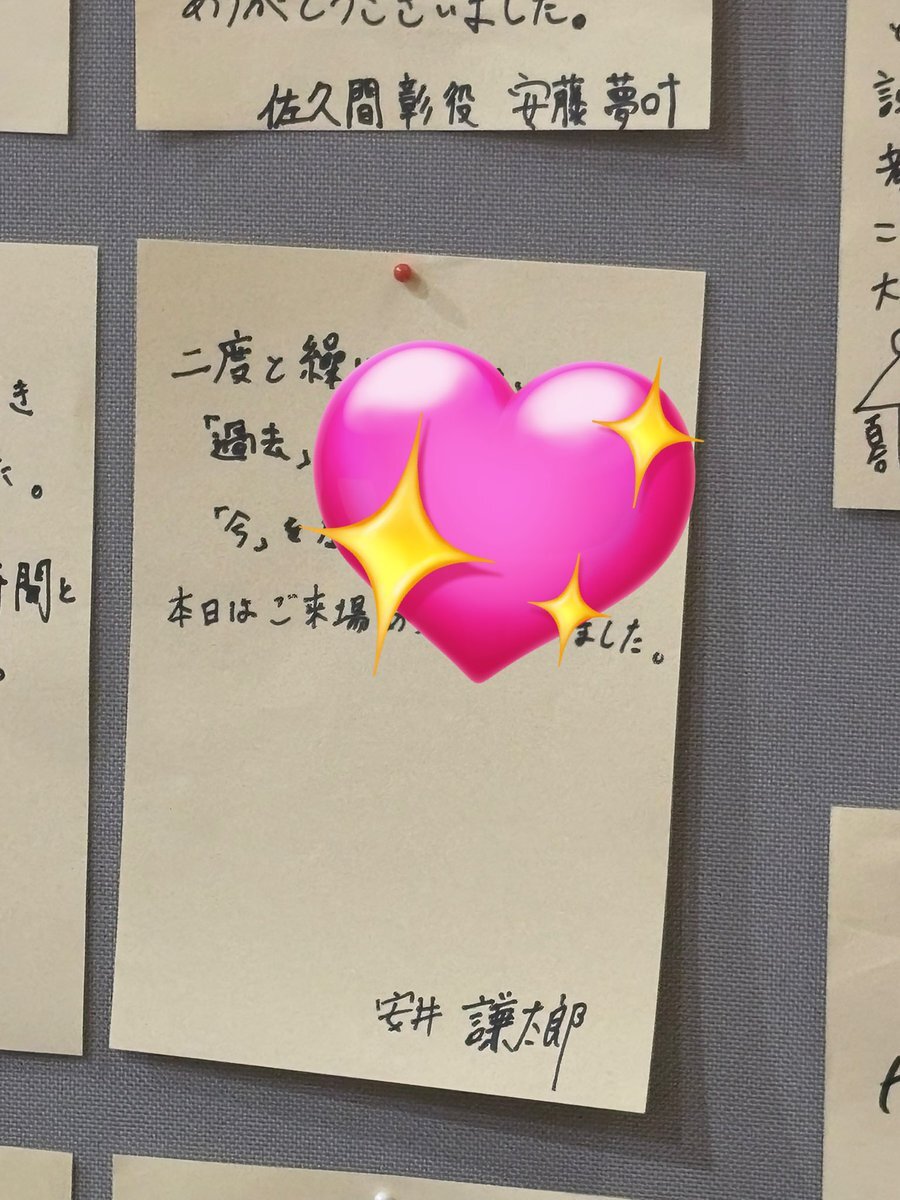 ありがとうございました。
佐久間彰役 安藤夢叶
二度と繰
「過去」
「今」を
本日はご来場 ました。
安井 謙太郎
き
た。
間と
。
者
こ
大